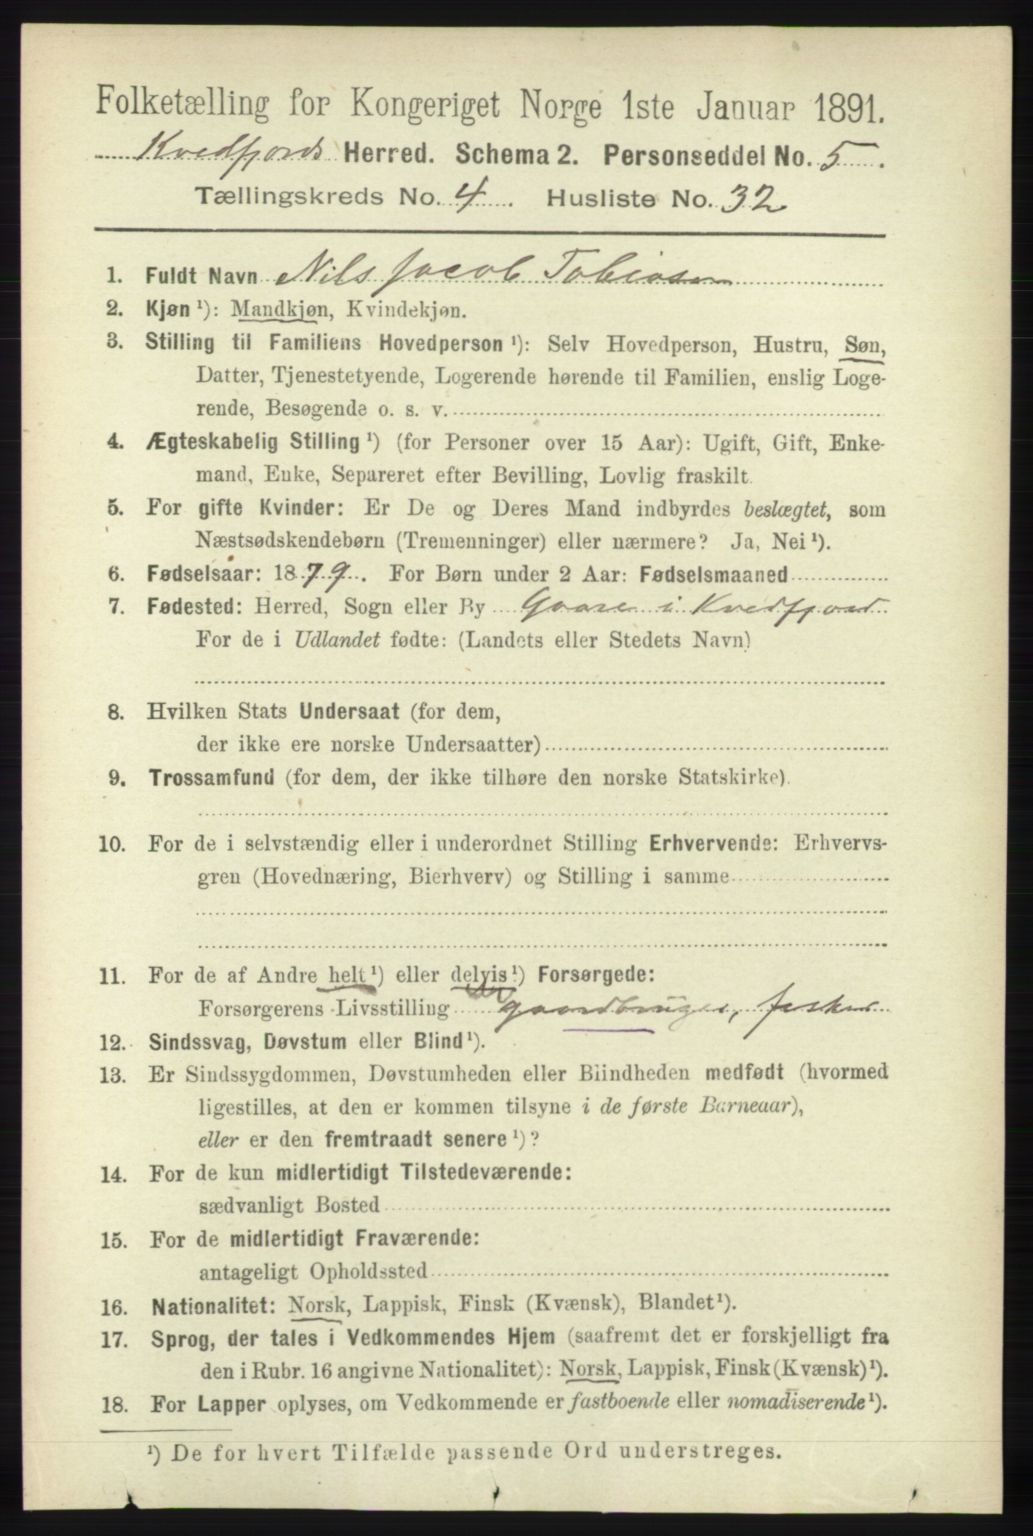 Folketælling for Kongeriget Norge 1ste Januar 1891.
Kvedfjords Herred. Schema 2. Personseddel No. 5.
Tællingskreds No. 4. Husliste No. 32
1. Fuldt Navn Nils Jacob Tobiassen
2. Kjøn ¹): Mandkjøn, Kvindekjøn.
3. Stilling til Familiens Hovedperson ¹): Selv Hovedperson, Hustru, Søn,
Datter, Tjenestetyende, Logerende hørende til Familien, enslig Loge-
rende, Besøgende o. s. v.
4. Ægteskabelig Stilling ¹) (for Personer over 15 Aar): Ugift, Gift, Enke-
mand, Enke, Separeret efter Bevilling, Lovlig fraskilt.
5. For gifte Kvinder: Er De og Deres Mand indbyrdes beslægtet, som
Næstsødskendebørn (Tremenninger) eller nærmere? Ja, Nei ¹).
6. Fødselsaar: 1879. For Børn under 2 Aar: Fødselsmaaned
7. Fødested: Herred, Sogn eller By Gaare i Kvedfjord
For de i Udlandet fødte: (Landets eller Stedets Navn)
8. Hvilken Stats Undersaat (for dem,
der ikke ere norske Undersaatter)
9. Trossamfund (for dem, der ikke tilhøre den norske Statskirke).
10. For de i selvstændig eller i underordnet Stilling Erhvervende: Erhvervs-
gren (Hovednæring, Bierhverv) og Stilling i samme
11. For de af Andre helt ¹) eller delvis ¹) Forsørgede:
Forsørgerens Livsstilling gaardbruger, fisker
12. Sindssvag, Døvstum eller Blind ¹).
13. Er Sindssygdommen, Døvstumheden eller Blindheden medfødt (hvormed
ligestilles, at den er kommen tilsyne i de første Barneaar),
eller er den fremtraadt senere ¹)?
14. For de kun midlertidigt Tilstedeværende:
sædvanligt Bosted
15. For de midlertidigt Fraværende:
antageligt Opholdssted
16. Nationalitet: Norsk, Lappisk, Finsk (Kvænsk), Blandet ¹).
17. Sprog, der tales i Vedkommendes Hjem (saafremt det er forskjelligt fra
den i Rubr. 16 angivne Nationalitet): Norsk, Lappisk, Finsk (Kvænsk) ¹).
18. For Lapper oplyses, om Vedkommende er fastboende eller nomadiserende ¹).
¹) De for hvert Tilfælde passende Ord understreges.